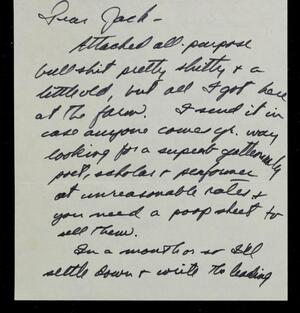 Dear Jack -
Attached all-purpose
bullshit pretty shitty + a
little old, but all I got here
at the farm. I send it in
case anyone comes yr. way
looking for a superb gentlemanly
poet, scholar + performer
at unreasonable rates +
you need a poop sheet to
sell them.
In a month or so I'll
settle down + write the leading